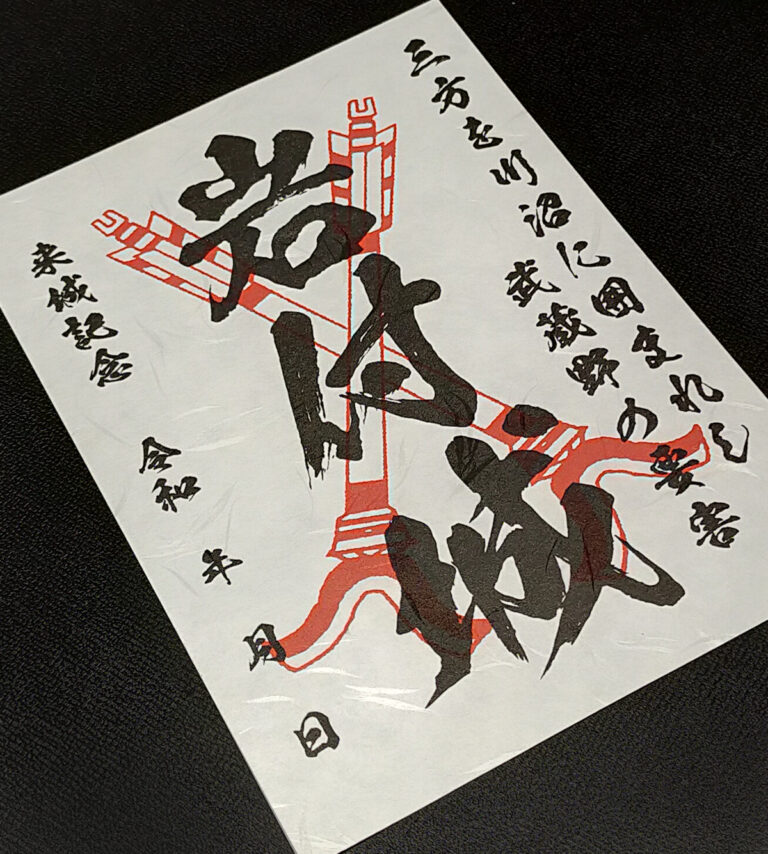 三方を川沼に囲まれし
武蔵野の要害
岩付城
来城記念
令和 年 月 日